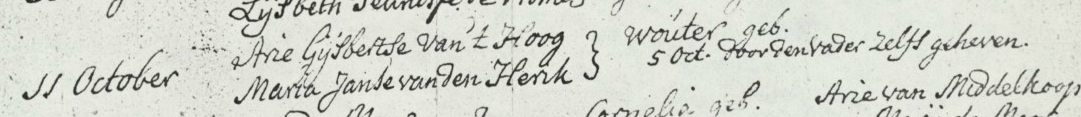 Lijsbeth
Arie Gijsbertse van't Hoog } Wouter geb.
5 Oct. door den vader zelfs geheven.
11 October Maria Janse vanden Herik
Cornelia geb. Arie van Middelkoop